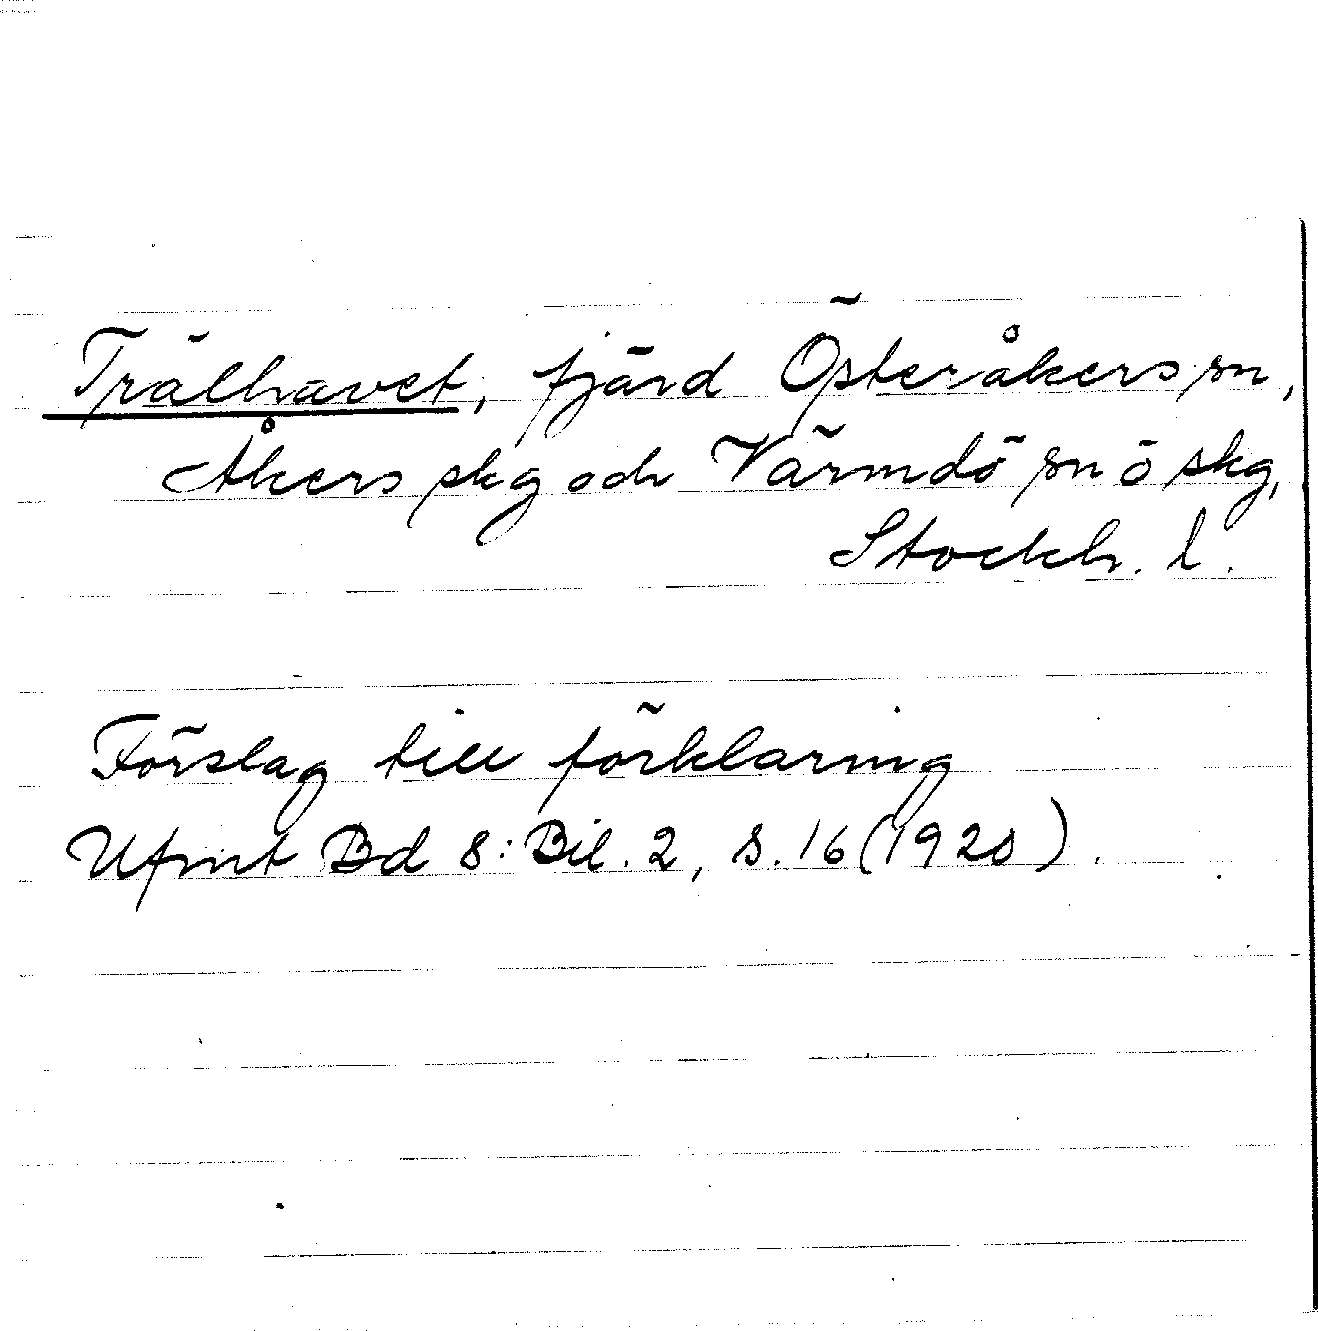 Trälhavet, fjärd Österåkers sn,
Åkers skg och Värmdö sn o skg,
Stockh. l.
Förslag till förklaring
Ufmt Bd 8: Bil. 2, s. 16 (1920).